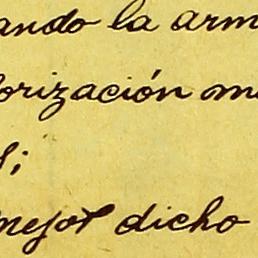 ando la arm
orización me
l;
mejor dicho